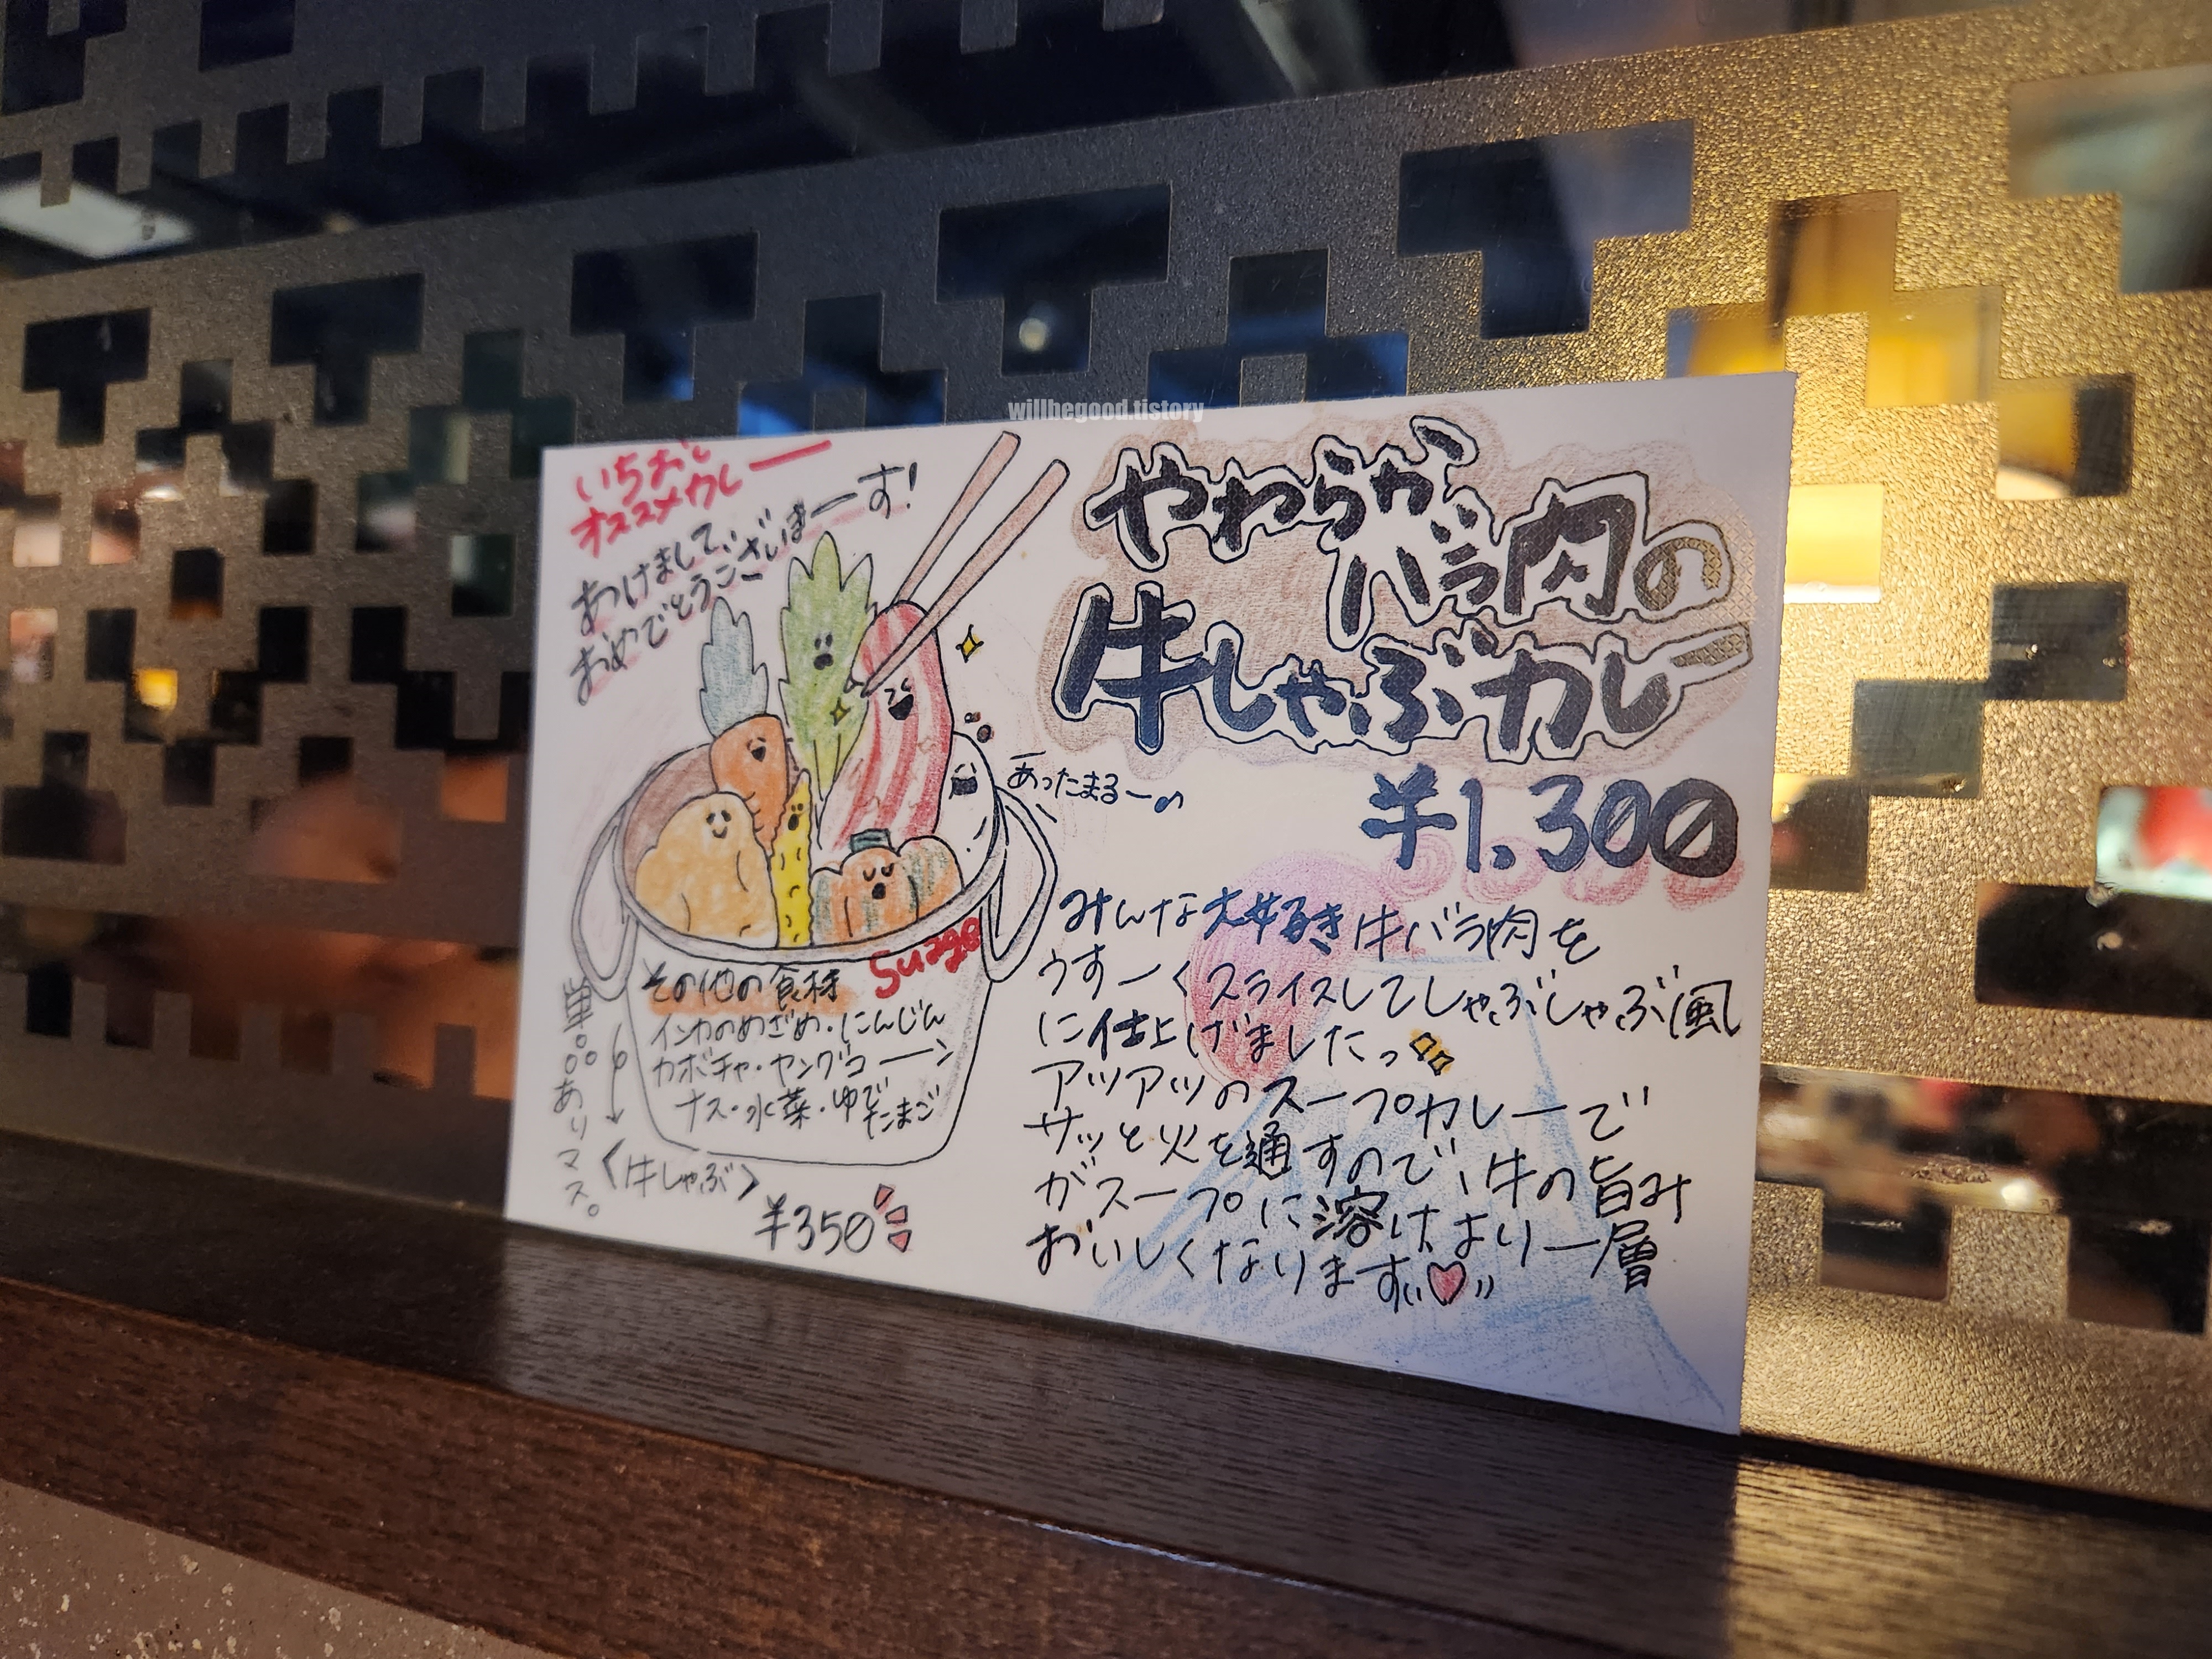 willbegood.tistory
いちおし
オススメカレー
あけまして
おめでとうございまーす!
やわらか
バラ肉の
牛しゃぶカレー
¥1.300
あったまるー
みんな大好き牛バラ肉を
うすーくスライスしてしゃぶしゃぶ風
に仕上げましたっ
アツアツのスープカレーで
サッと火を通すので、牛の旨み
がスープに溶けより一層
おいしくなります
Suage
その他の食材
インカのめざめ・にんじん
カボチャ・ヤングコーン
ナス・水菜・ゆでたまご
単品ありマス。
〈牛しゃぶ〉
¥350